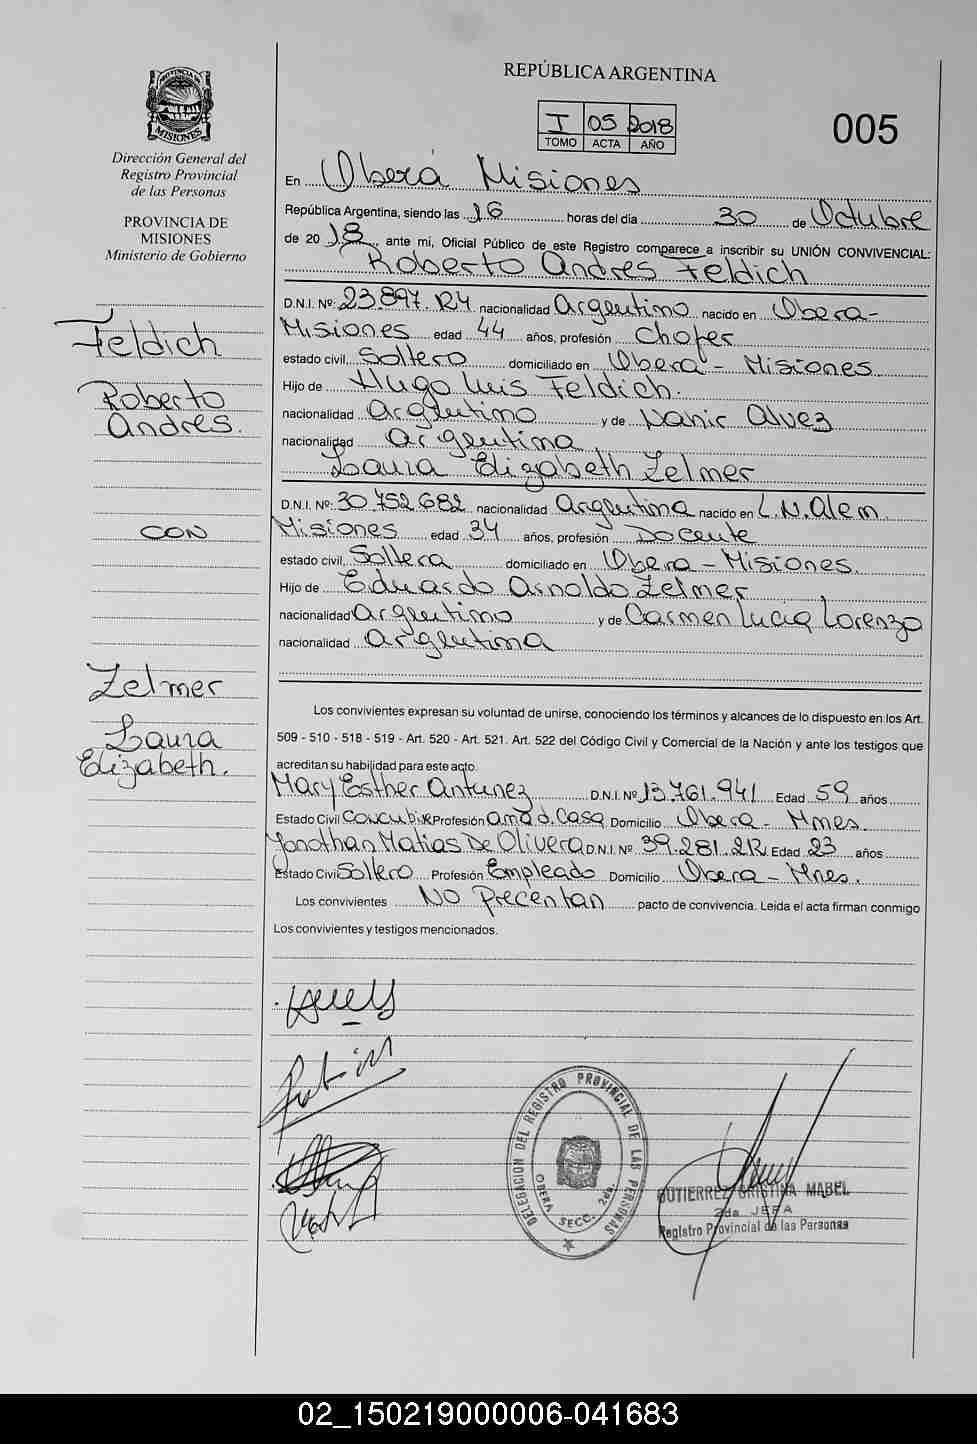 REPÚBLICA ARGENTINA
I 05 2018
TOMO ACTA AÑO
005
PROVINCIA DE
MISIONES
Dirección General del
Registro Provincial
de las Personas
PROVINCIA DE
MISIONES
Ministerio de Gobierno
Feldich
Roberto
Andres.
CON
Zelmer
Laura
Elizabeth.
En Oberá Misiones
República Argentina, siendo las 16 horas del día 30 de Octubre
de 2018, ante mi, Oficial Público de este Registro comparece a inscribir su UNIÓN CONVIVENCIAL:
Roberto Andres Feldich
D.N.I. Nº: 23.897.124 nacionalidad Argentino nacido en Obera-
Misiones edad 44 años, profesión Chofer
estado civil, Soltero domiciliado en Obera - Misiones
Hijo de Hugo Luis Feldich.
nacionalidad Argentino y de Alvez
nacionalidad Argentina
Laura Elizabeth Zelmer
D.N.I. Nº: 30.752.682 nacionalidad Argentina nacido en L.N.Alem
Misiones edad 34 años, profesión Docente
estado civil, Soltera domiciliado en Obera - Misiones.
Hijo de Eduardo Arnoldo Zelmer
nacionalidad Argentino y de Carmen Lucia Lorenzo
nacionalidad Argentina
Los convivientes expresan su voluntad de unirse, conociendo los términos y alcances de lo dispuesto en los Art.
509 - 510 - 518 - 519 - Art. 520 - Art. 521. Art. 522 del Código Civil y Comercial de la Nación y ante los testigos que
acreditan su habilidad para este acto.
Mary Esther Antunez D.N.I. Nº 13.761.941 Edad 59 años
Estado Civil Profesión ama d. Casa Domicilio Obera - Mnes.
Jonathan Matias De Olivera D.N.I. Nº 39.281.212 Edad 23 años
Estado Civil Soltero Profesión Empleado Domicilio Obera - Mnes.
Los convivientes NO Precentan pacto de convivencia. Leida el acta firman conmigo
Los convivientes y testigos mencionados.
DELEGACION DEL REGISTRO PROVINCIAL DE LAS PERSONAS
OBERA SECC. 2da.
GUTIERREZ CRISTINA MABEL
2da JEFA
Registro Provincial de las Personas
02_150219000006-041683